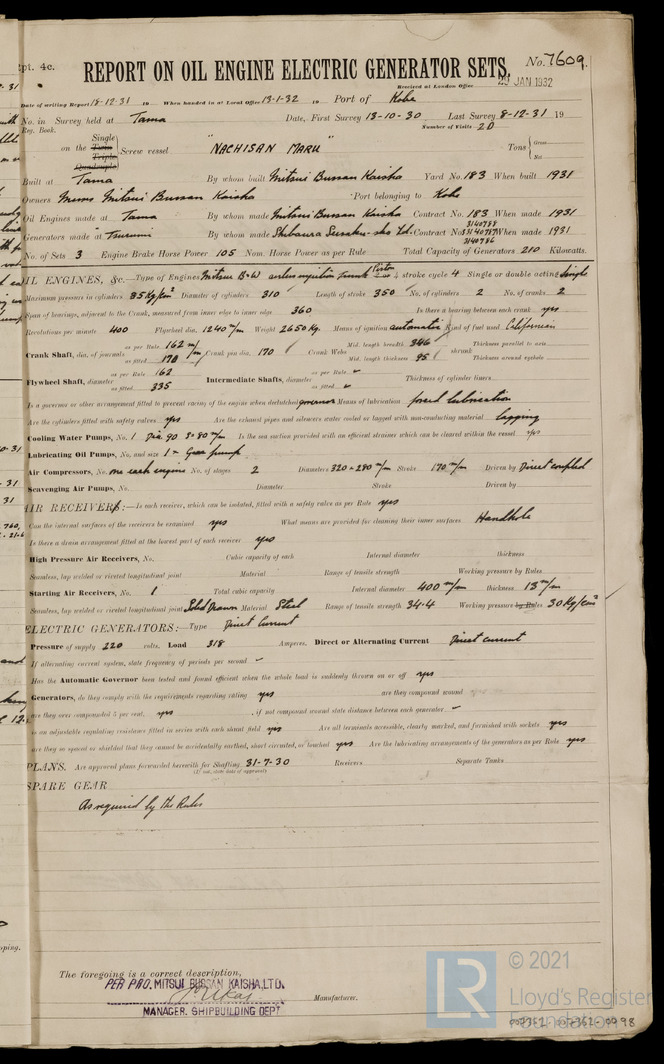 Rpt. 4c.
REPORT ON OIL ENGINE ELECTRIC GENERATOR SETS.
No. 7609.
Received at London Office 29 JAN 1932
Date of writing Report 18-12-31 19 When handed in at Local Office 13-1-32 19 Port of Kobe
No. in Survey held at Tama Date, First Survey 13-10-30 Last Survey 8-12-31 19
Reg. Book. Number of Visits 20
on the Single Twin Triple Quadruple Screw vessel "NACHISAN MARU" Tons Gross Net
Built at Tama By whom built Mitsui Bussan Kaisha Yard No. 183 When built 1931
Owners Messrs Mitsui Bussan Kaisha Port belonging to Kobe
Oil Engines made at Tama By whom made Mitsui Bussan Kaisha Contract No. 183 When made 1931
3140788
Generators made at Tsurumi By whom made Shibaura Contract No. 3140787 When made 1931
3140786
No. of Sets 3 Engine Brake Horse Power 105 Nom. Horse Power as per Rule Total Capacity of Generators 210 Kilowatts.
OIL ENGINES, &c.—Type of Engines Mitsui B+W airless injection trunk piston 4 stroke cycle 4 Single or double acting Single
Maximum pressure in cylinders 35 Kg/cm² Diameter of cylinders 310 Length of stroke 350 No. of cylinders 2 No. of cranks 2
Span of bearings, adjacent to the Crank, measured from inner edge to inner edge 360 Is there a bearing between each crank yes
Revolutions per minute 400 Flywheel dia. 1240 m/m Weight 2650 Kg. Means of ignition automatic Kind of fuel used Californian
Crank Shaft, dia. of journals as per Rule 162 m/m as fitted 170 Crank pin dia. 170 Crank Webs Mid. length breadth 346 Mid. length thickness 95 shrunk Thickness parallel to axis Thickness around eyehole
Flywheel Shaft, diameter as per Rule 162 as fitted 335 Intermediate Shafts, diameter as per Rule as fitted Thickness of cylinder liners
Is a governor or other arrangement fitted to prevent racing of the engine when declutched governor Means of lubrication forced lubrication
Are the cylinders fitted with safety valves yes Are the exhaust pipes and silencers water cooled or lagged with non-conducting material lagging
Cooling Water Pumps, No. 1 Dia. 90 S=80 m/m Is the sea suction provided with an efficient strainer which can be cleared within the vessel yes
Lubricating Oil Pumps, No. and size 1 - Gear pump
Air Compressors, No. one each engine No. of stages 2 Diameters 320-280 m/m Stroke 170 m/m Driven by Direct coupled
Scavenging Air Pumps, No. Diameter Stroke Driven by
AIR RECEIVERS:—Is each receiver, which can be isolated, fitted with a safety valve as per Rule yes
Can the internal surfaces of the receivers be examined yes What means are provided for cleaning their inner surfaces Handhole
Is there a drain arrangement fitted at the lowest part of each receiver yes
High Pressure Air Receivers, No. Cubic capacity of each Internal diameter thickness
Seamless, lap welded or riveted longitudinal joint Material Range of tensile strength Working pressure by Rules
Starting Air Receivers, No. 1 Total cubic capacity Internal diameter 400 m/m thickness 13 m/m
Seamless, lap welded or riveted longitudinal joint Solid Drawn Material Steel Range of tensile strength 34.4 Working pressure by Rules 30 Kg/cm²
ELECTRIC GENERATORS:—Type Direct Current
Pressure of supply 220 volts. Load 318 Amperes. Direct or Alternating Current Direct current
If alternating current system, state frequency of periods per second
Has the Automatic Governor been tested and found efficient when the whole load is suddenly thrown on or off yes
Generators, do they comply with the requirements regarding rating yes are they compound wound
are they over compounded 5 per cent. yes, if not compound wound state distance between each generator
is an adjustable regulating resistance fitted in series with each shunt field yes Are all terminals accessible, clearly marked, and furnished with sockets yes
are they so spaced or shielded that they cannot be accidentally earthed, short circuited, or touched yes Are the lubricating arrangements of the generators as per Rule yes
PLANS. Are approved plans forwarded herewith for Shafting 31-7-30 Receivers Separate Tanks
(If not, state date of approval)
SPARE GEAR
As required by the Rules
The foregoing is a correct description,
PER PRO. MITSUI BUSSAN KAISHA, LTD.
MANAGER. SHIPBUILDING DEPT.
Manufacturer.
LR
© 2021
Lloyd's Register
Foundation